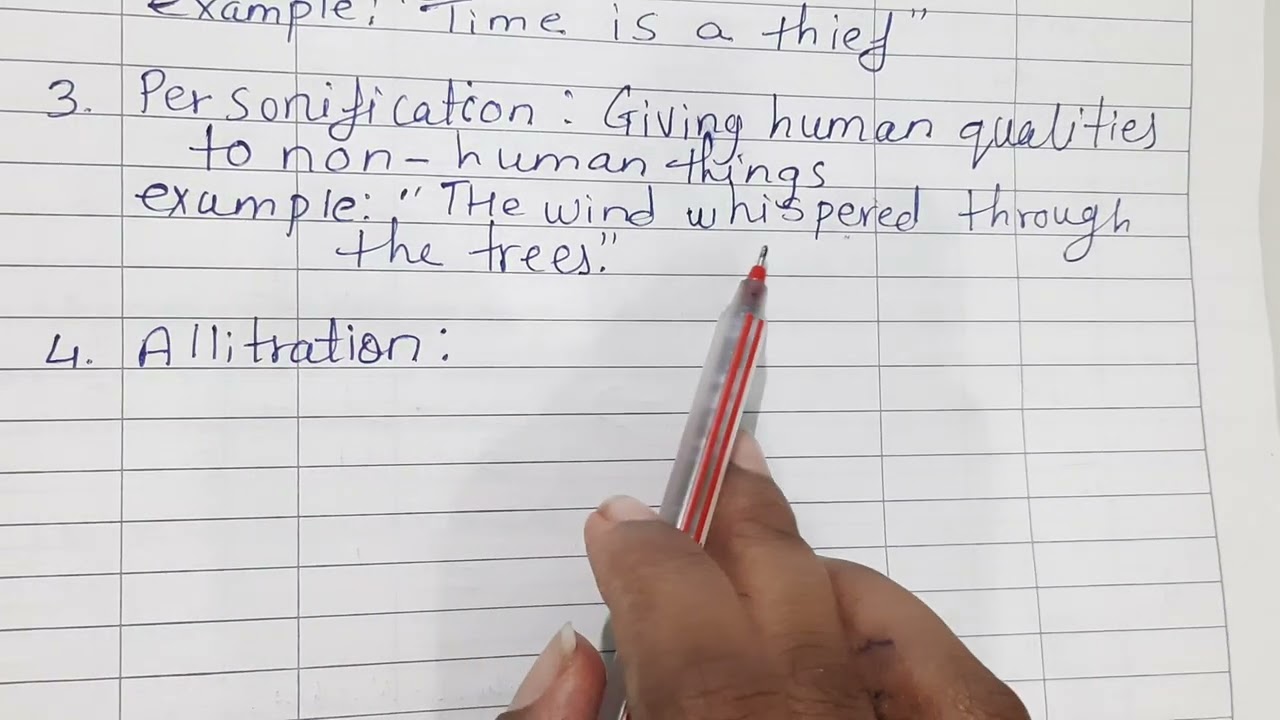 example: "Time is a thief"
3. Personification: Giving human qualities
to non-human things
example: "THe wind whispered through
the trees."
4. Allitration: